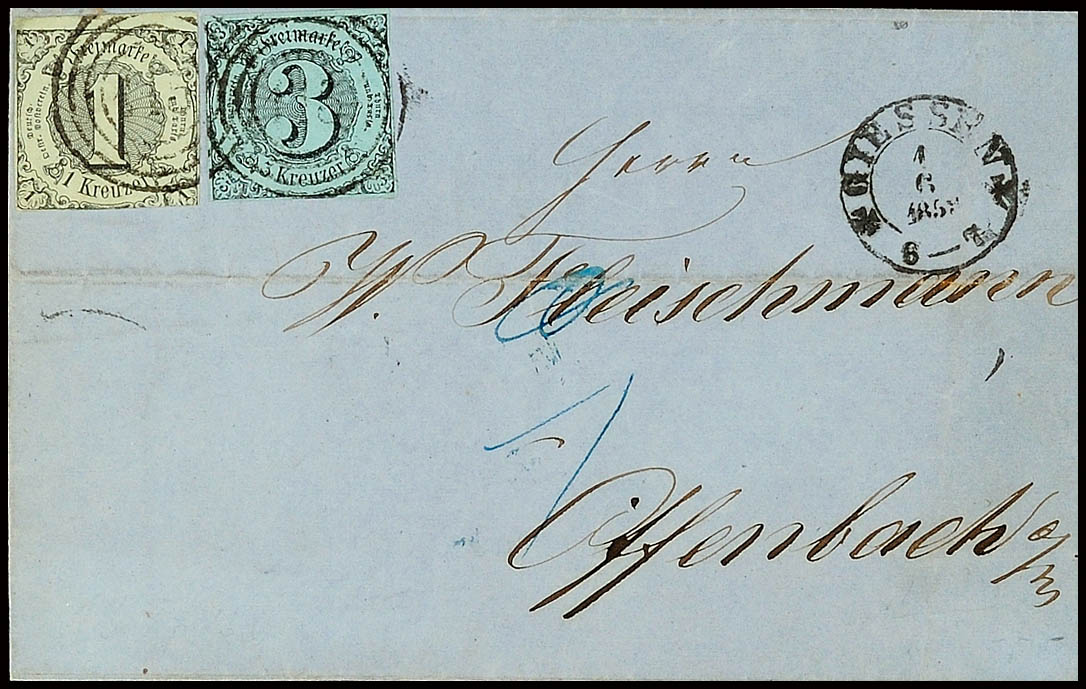 1
Freimarke
1 Kreuzer
3
Freimarke
3 Kreuzer
GIESSEN
1
6
6
Herrn
W. Fleischmann
Offenbach a/m